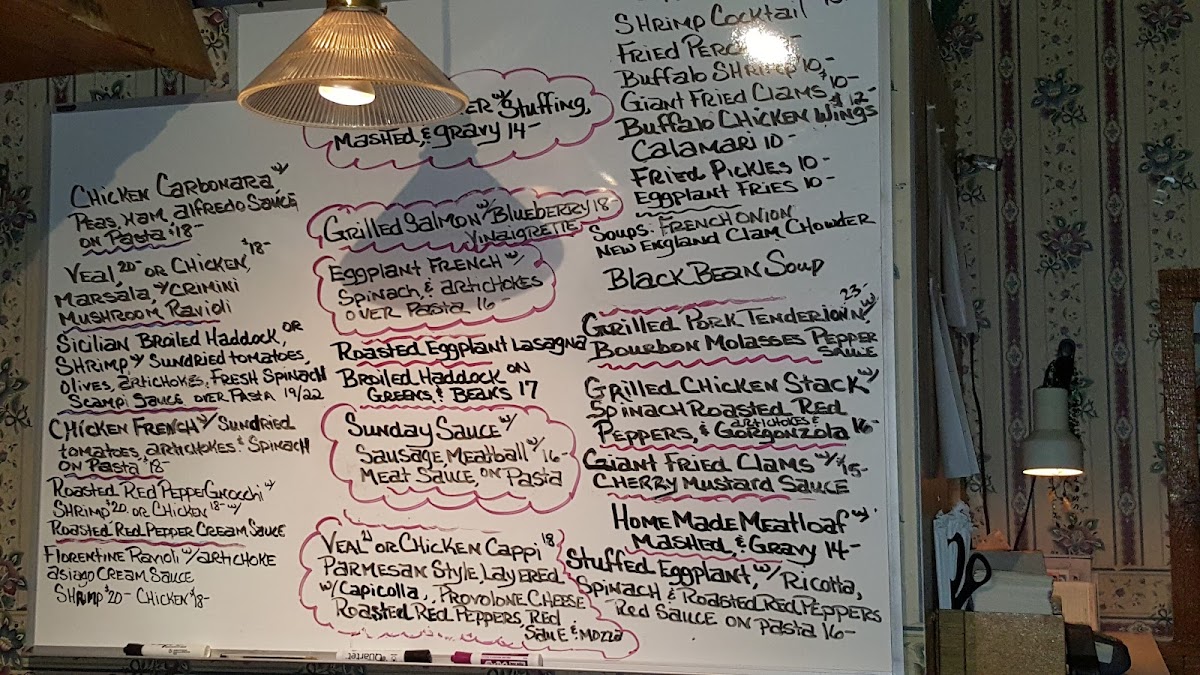 Chicken Carbonara w/
Peas, Ham, alfredo Sauce
on Pasta $18-
Veal, 20- or Chicken, $18-
Marsala, w/ Crimini
Mushroom Ravioli
Sicilian Broiled Haddock, or
Shrimp w/ Sundried tomatoes,
olives, artichokes, Fresh Spinach
Scampi Sauce over Pasta 19/22
Chicken French w/ Sundried
tomatoes, artichokes & Spinach
on Pasta $18-
Roasted Red Pepper Gnocchi w/
Shrimp $20 or Chicken 18- w/
Roasted Red Pepper Cream Sauce
Florentine Ravioli w/ artichoke
asiago Cream Sauce
Shrimp $20- Chicken $18-
w/ Stuffing,
Mashed, & gravy 14-
Grilled Salmon w/ Blueberry 18-
Vinaigrette
Eggplant French w/
Spinach, & artichokes
over Pasta 16-
Roasted Eggplant Lasagna
Broiled Haddock on
Greens & Beans 17
Sunday Sauce w/
Sausage, Meatball w/ 16-
Meat Sauce, on Pasta
Veal or Chicken Cappi 18
Parmesan Style, Layered
w/ Capicolla, Provolone Cheese
Roasted Red Peppers, Red
Sauce & Mozza
Shrimp Cocktail
Fried
Buffalo Shrimp 10-
Giant Fried Clams $10-
Buffalo Chicken Wings $12-
Calamari 10-
Fried Pickles 10-
Eggplant Fries 10-
Soups: French Onion
New England Clam Chowder
Black Bean Soup
Grilled Pork Tenderloin w/ 23-
Bourbon Molasses Pepper
Sauce
Grilled Chicken Stack w/
Spinach Roasted Red
Peppers, artichokes & & Gorgonzola 16-
Giant Fried Clams w/ $15-
Cherry Mustard Sauce
Home Made Meatloaf w/
Mashed, & Gravy 14-
Stuffed Eggplant, w/ Ricotta,
Spinach & Roasted Red Peppers
Red Sauce on Pasta 16-